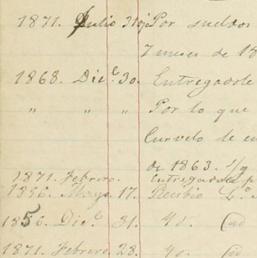 1871. Julio 31 Por sueldos
7 meses de 18
1868. Dic.e 30. Entregadole
" " " Por lo que
Curvelo de
de 1863. S/g
1871. Febrero. Entregadole p
1856. Mayo 17. Recibio
1856. Dic.e 31. "
1871. Febrero 28. "